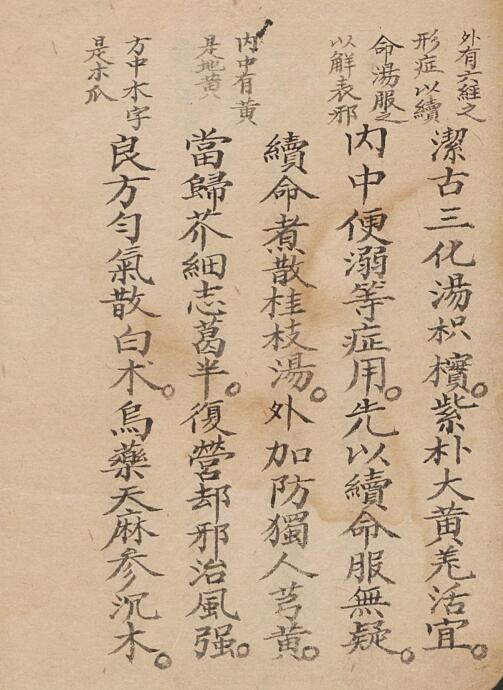 外有六經之
形症以續
命湯服之
以解表邪
潔古三化湯枳檳。紫朴大黃羌活宜。
内中便溺等症用。先以續命服無疑。
内中有黃
是地黃
續命煮散桂枝湯。外加防獨人芎黃。
當歸芥細志葛半。復營却邪治風强。
方中木字
是木瓜
良方勻氣散白朮。烏藥天麻參沉木。